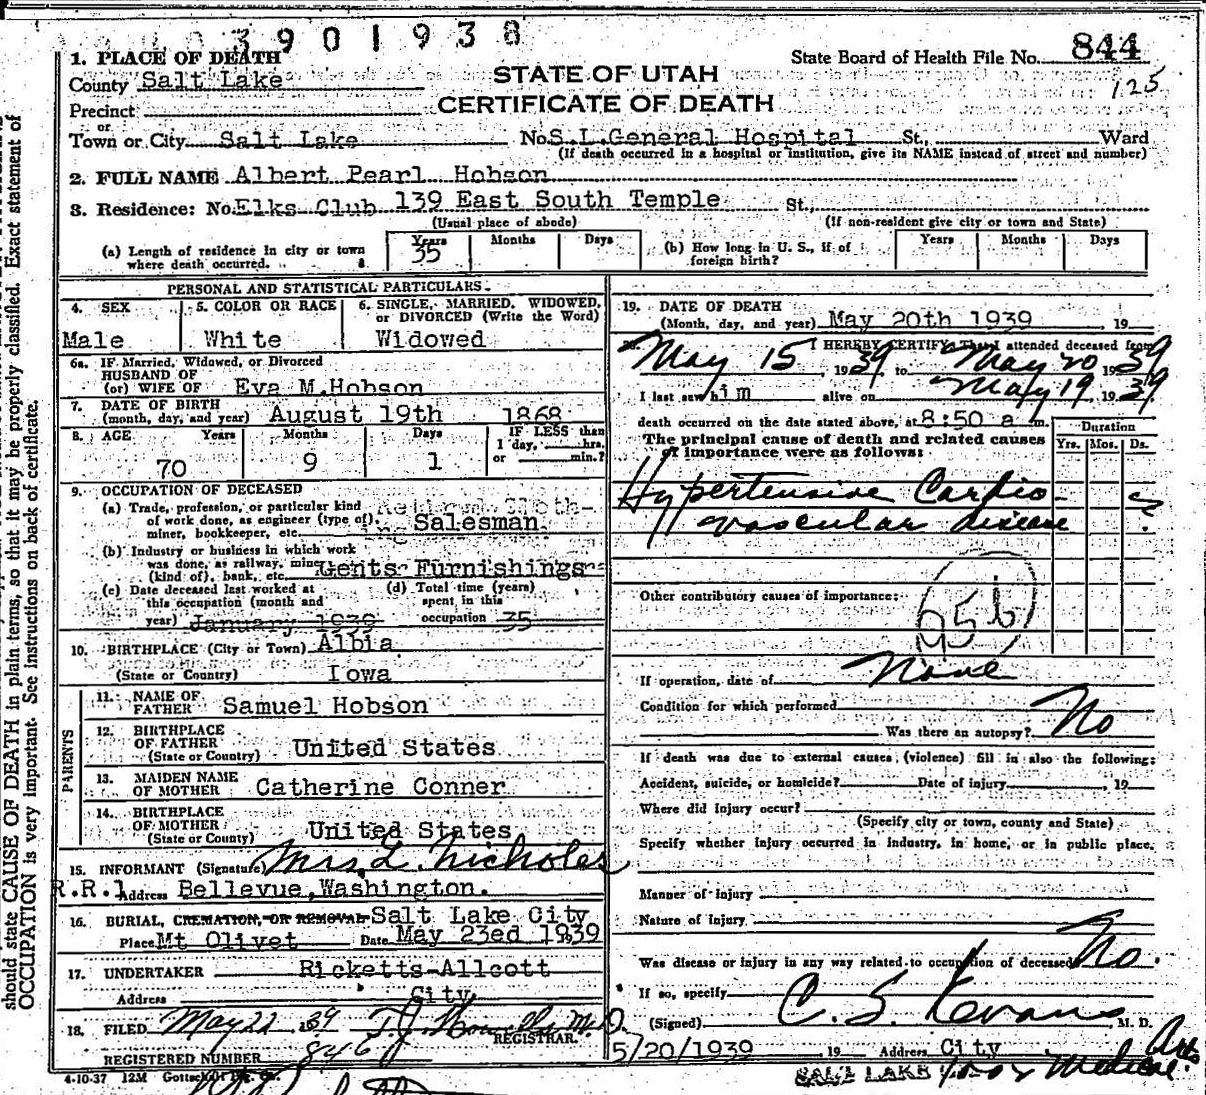 3901938
1. PLACE OF DEATH
State Board of Health File No. 844
County Salt Lake
STATE OF UTAH
125
Precinct
CERTIFICATE OF DEATH
or
Town or City Salt Lake No. S.L.General Hospital St., Ward
(If death occurred in a hospital or institution, give its NAME instead of street and number)
2. FULL NAME Albert Pearl Hobson
3. Residence: No. Elks Club 139 East South Temple St.,
(Usual place of abode) (If non-resident give city or town and State)
(a) Length of residence in city or town where death occurred. Years 35 Months Days
(b) How long in U. S., if of foreign birth? Years Months Days
PERSONAL AND STATISTICAL PARTICULARS.
4. SEX Male
5. COLOR OR RACE White
6. SINGLE, MARRIED, WIDOWED, or DIVORCED (Write the Word) Widowed
6a. IF Married, Widowed, or Divorced
HUSBAND OF
(or) WIFE OF Eva M.Hobson
7. DATE OF BIRTH
(month, day, and year) August 19th 1868
8. AGE Years Months Days IF LESS than
1 day, hrs.
or min.?
70 9 1
9. OCCUPATION OF DECEASED
(a) Trade, profession, or particular kind
of work done, as engineer (type of), Salesman
miner, bookkeeper, etc.
(b) Industry or business in which work
was done, as railway, mine
(kind of), bank, etc. Gents Furnishings
(c) Date deceased last worked at
this occupation (month and
year) January 1939
(d) Total time (years)
spent in this
occupation 35
10. BIRTHPLACE (City or Town) Albia
(State or Country) Iowa
PARENTS
11. NAME OF
FATHER Samuel Hobson
12. BIRTHPLACE
OF FATHER United States
(State or Country)
13. MAIDEN NAME
OF MOTHER Catherine Conner
14. BIRTHPLACE
OF MOTHER
(State or County) United States
15. INFORMANT (Signature) Mrs. L. Nicholas
R.R.1 Address Bellevue,Washington.
16. BURIAL, CREMATION, OR REMOVAL Salt Lake City
Place Mt Olivet Date May 23ed 1939
17. UNDERTAKER Ricketts-Allcott
Address City
18. FILED May 22 1939
REGISTRAR.
REGISTERED NUMBER 846
4-10-37 12M
19. DATE OF DEATH
(Month, day, and year) May 20th 1939, 19
I HEREBY CERTIFY, That I attended deceased from
May 15, 1939, to May 20 1939
I last saw him alive on May 19, 1939.
death occurred on the date stated above, at 8:50 a m.
The principal cause of death and related causes
of importance were as follows:
Duration
Yrs. Mos. Ds.
Hypertensive Cardio- ?
vascular disease
Other contributory causes of importance:
95b
If operation, date of None
Condition for which performed
Was there an autopsy? No
If death was due to external causes (violence) fill in also the following:
Accident, suicide, or homicide? Date of injury, 19
Where did injury occur?
(Specify city or town, county and State)
Specify whether injury occurred in industry, in home, or in public place.
Manner of injury
Nature of injury
Was disease or injury in any way related to occupation of deceased No.
If so, specify
(Signed) C. S. Evans, M. D.
5/20/1939 19 Address City
SALT LAKE
should state CAUSE OF DEATH in plain terms, so that it may be properly classified. Exact statement of
OCCUPATION is very important. See instructions on back of certificate.